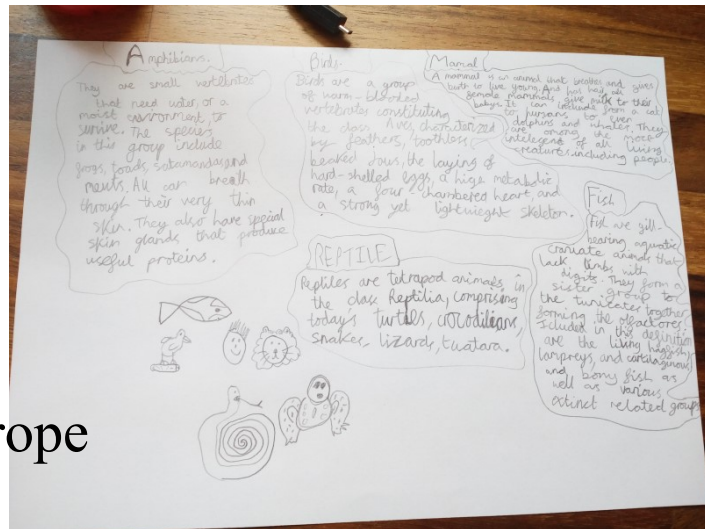 Amphibians.
They are small vertebrates
that need water, or a
moist environment, to
survive. The species
in this group include
frogs, toads, salamanders, and
newts. All can breath
through their very thin
skin. They also have special
skin glands that produce
useful proteins.
Birds.
Birds are a group
of warm-blooded
vertebrates constituting
the class Aves, characterized
by feathers, toothless,
beaked jaws, the laying of
hard-shelled eggs, a high metabolic
rate, a four chambered heart, and
a strong yet lightwieght skeleton.
Mamal
A mammal is an animal that breathes and gives
birth to live young. And has hair. All
female mammals give milk to their
babys. It can include from a cat
to humans, to even
dolphins and whales. They
are among the most
intelegent of all living
creatures, including people.
REPTILE
Reptiles are tetrapod animals, in
the class Reptilia, comprising
today's turtels, crocodilians,
snakes, lizards, tuatara.
Fish
Fish are gill-
bearing aquatic
craniate animals that
lack limbs with
digits. They form a
sister group to
the tunicates together
forming the olfactores.
Included in this definition
are the living hagfish,
lampreys, and cartilaginous
and bony fish as
well as various
extinct related groups
rope